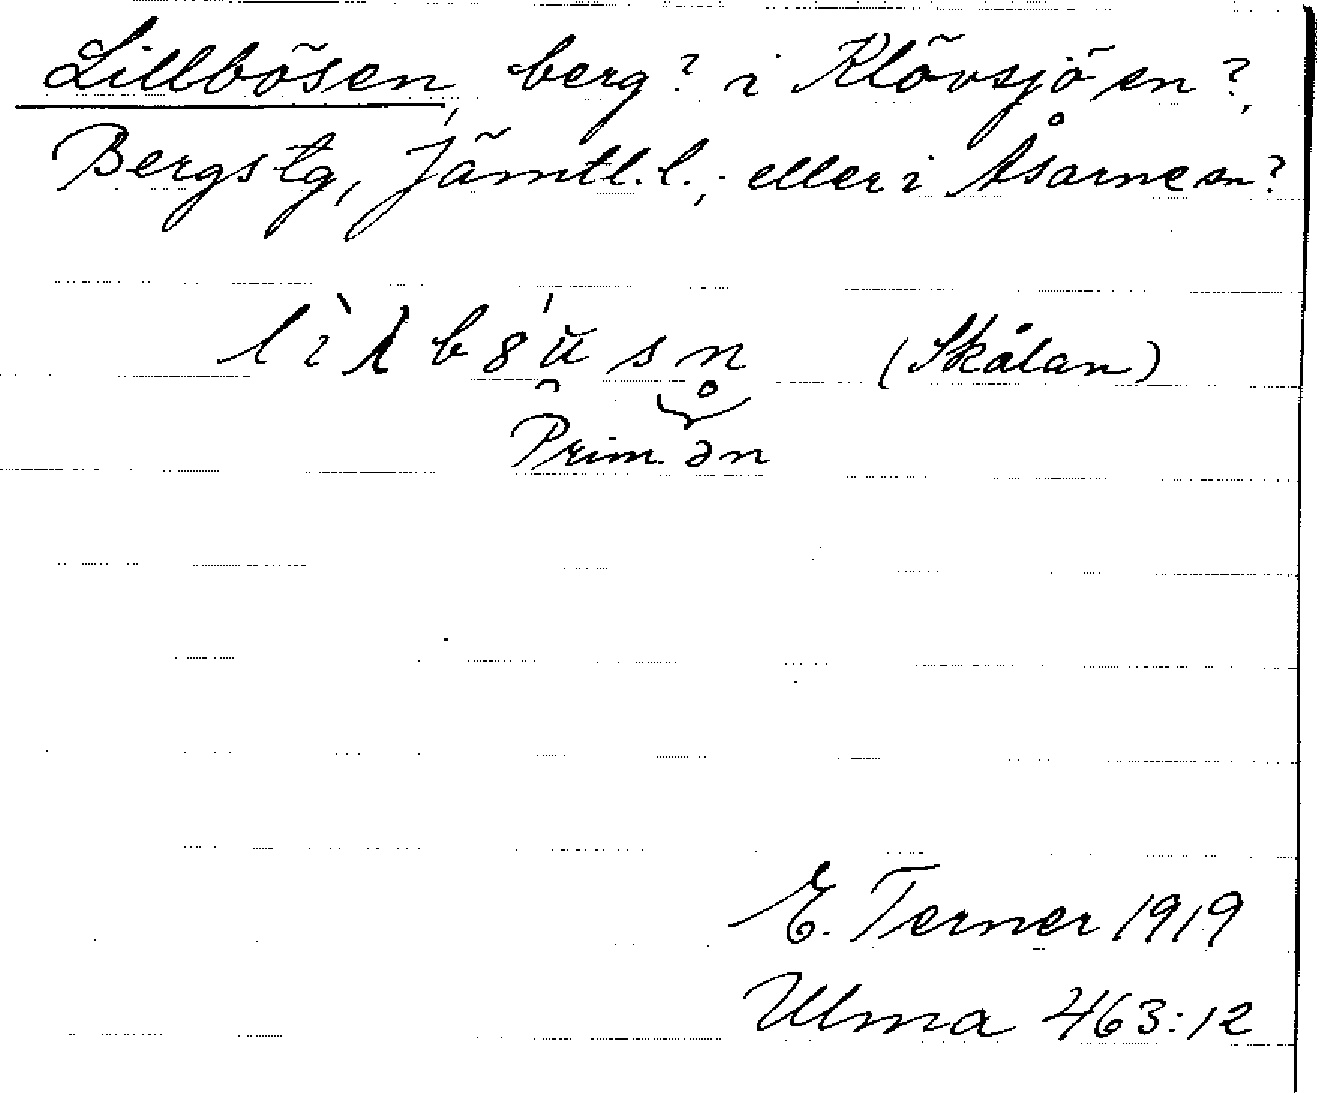 Lillbösen, berg? i Klövsjö sn?,
Bergs tg, Jämtl. l., eller i Åsarne sn?
(Skålan)
Prim. ən
E. Terner 1919
Ulma 463:12